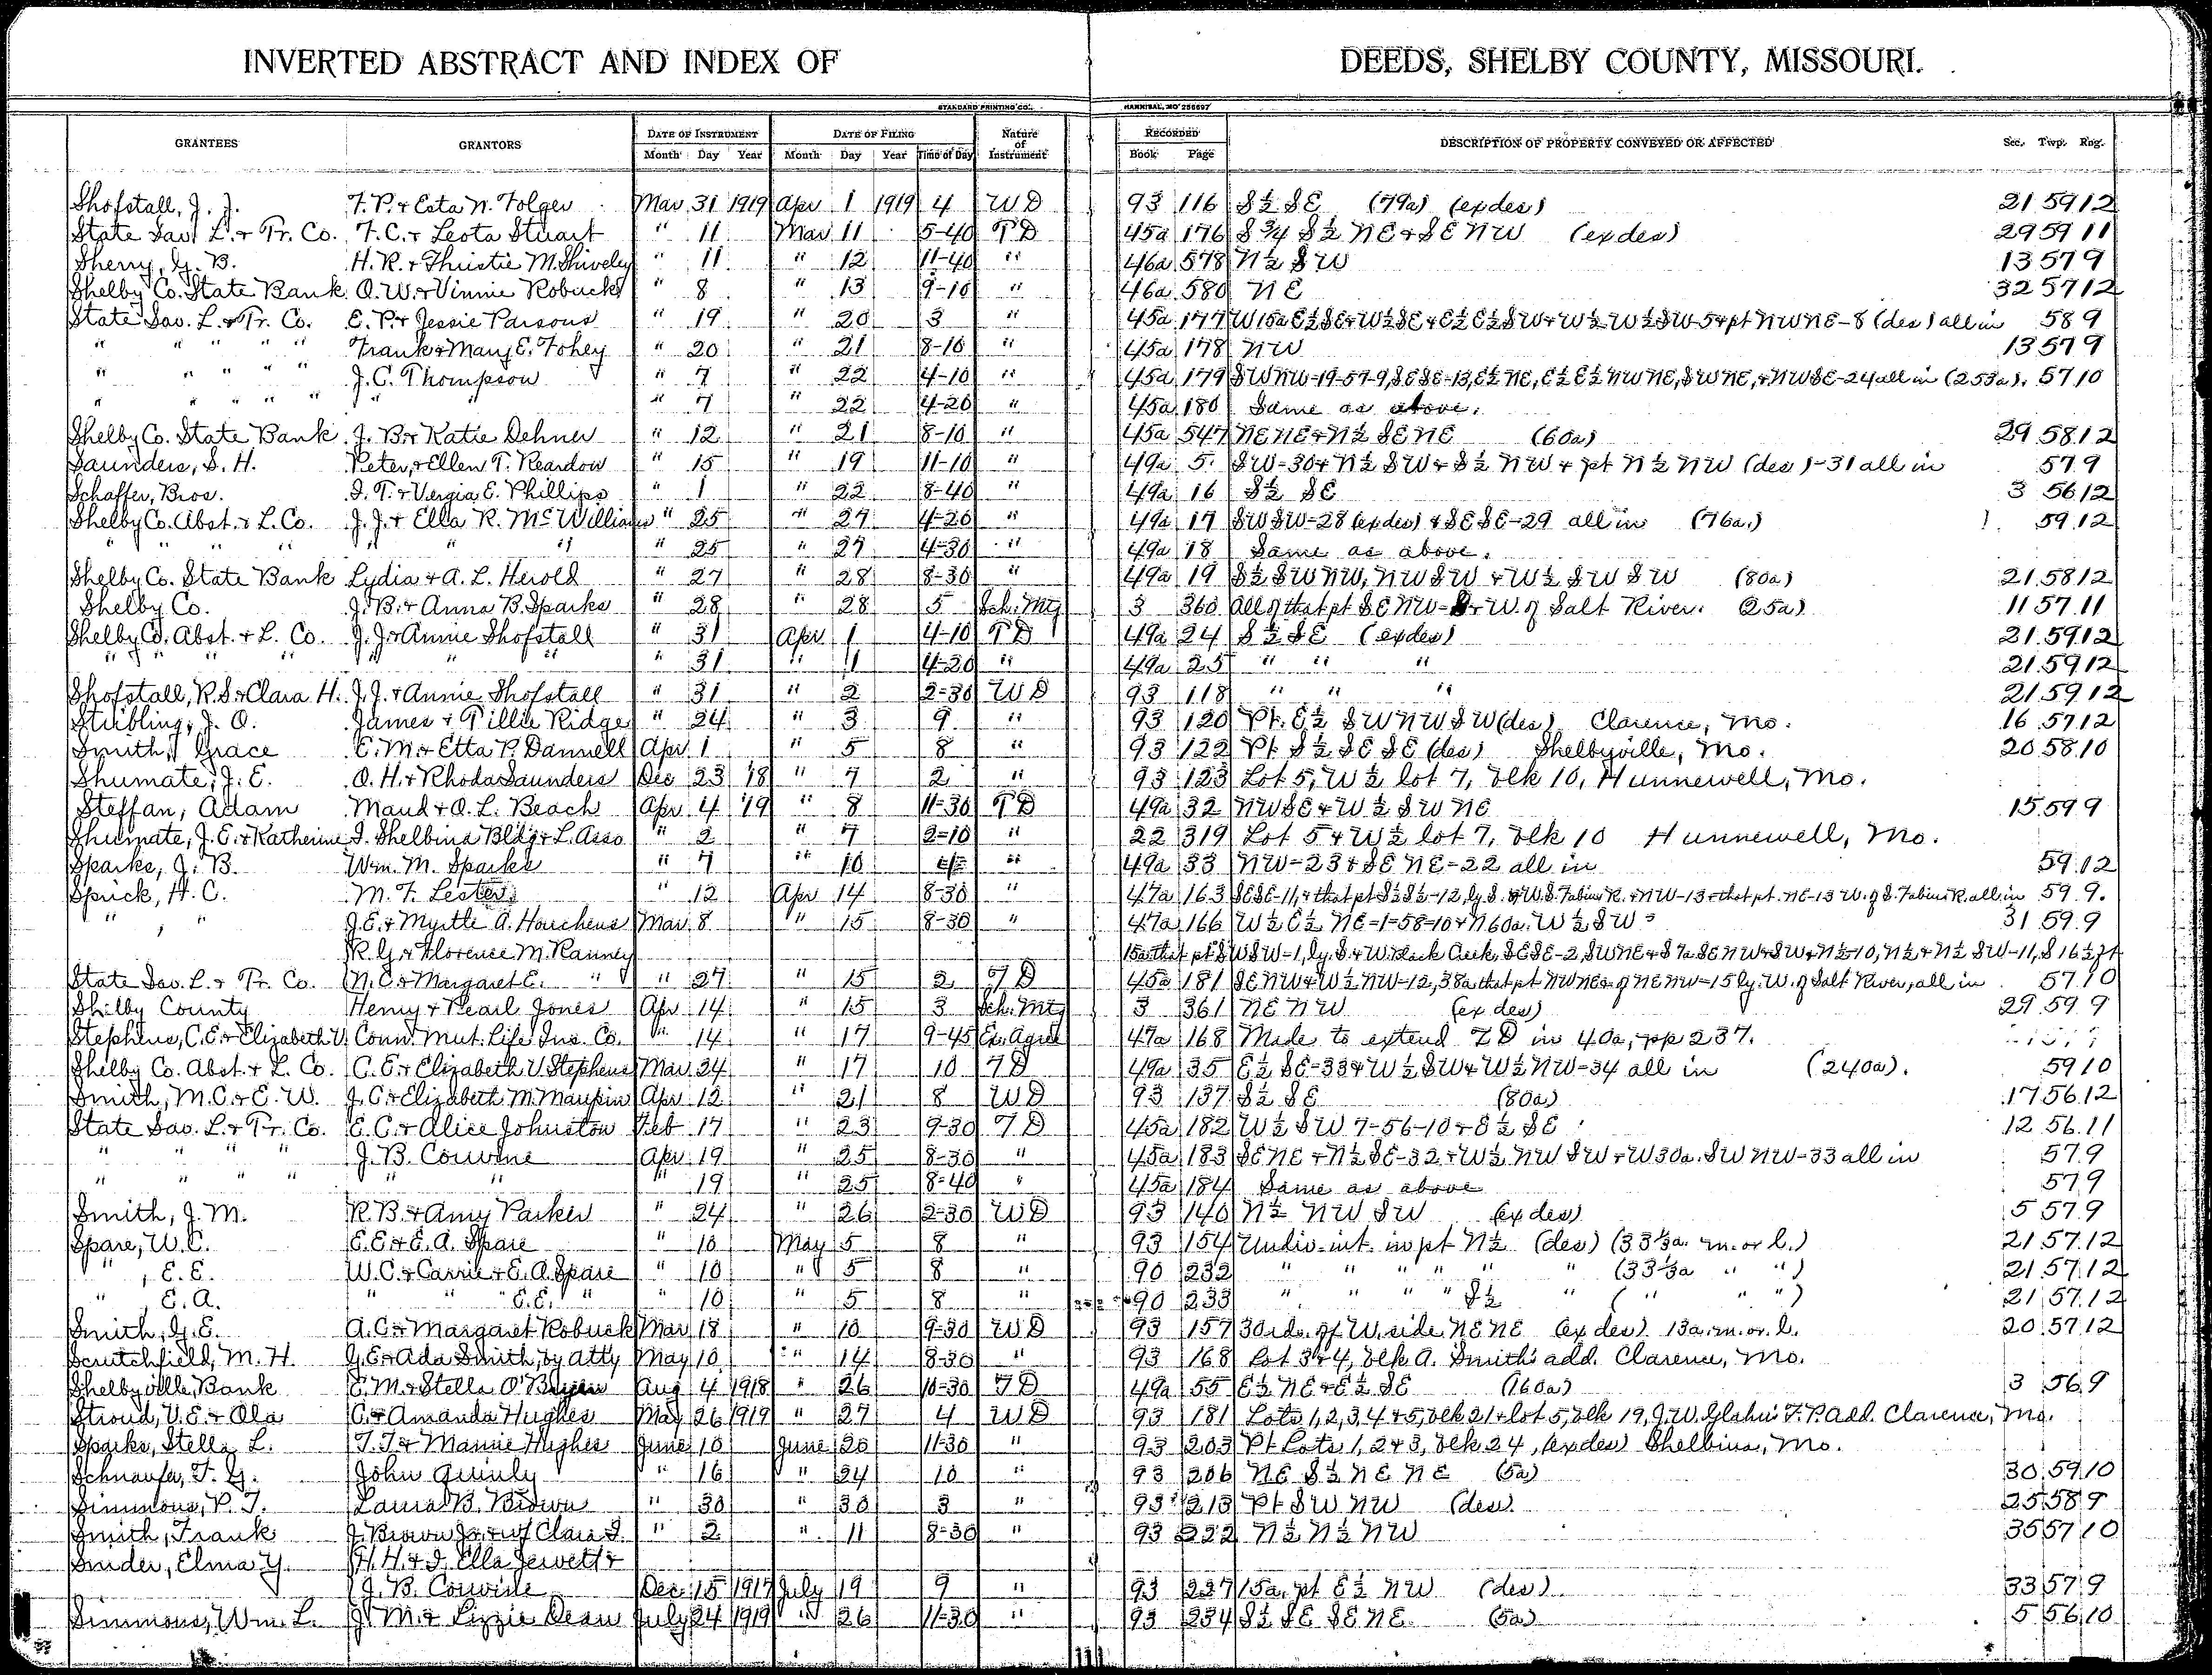 INVERTED ABSTRACT AND INDEX OF DEEDS, SHELBY COUNTY, MISSOURI.
STANDARD PRINTING CO. HANNIBAL, MO 256697
GRANTEES GRANTORS DATE OF INSTRUMENT DATE OF FILING Nature of Instrument RECORDED DESCRIPTION OF PROPERTY CONVEYED OR AFFECTED Sec. Twp. Rng.
Month Day Year Month Day Year Time of Day Book Page
Shofstall, J. J. F. P. & Esta N. Folger Mar 31 1919 Apr 1 1919 4 WD 93 116 S½ SE (79a) (ex des) 21 59 12
State Sav. L. & Tr. Co. F. C. & Leota Stuart " 11 Mar 11 5-40 TD 45a 176 S¾ S½ NE & SE NW (ex des) 29 59 11
Sherry, G. B. H. R. & Thristie M. Shively " 11 " 12 11-40 " 46a 578 N½ SW 13 57 9
Shelby Co. State Bank O. W. & Vinnie Robuck " 8 " 13 9-10 " 46a 580 NE 32 57 12
State Sav. L. & Tr. Co. E. P. & Jessie Parsons " 19 " 20 3 " 45a 177 W 15a E½ SE & W½ SE & E½ E½ SW & W½ W½ SW-5 & pt NW NE-8 (des) all in 58 9
" " " " " Frank & Mary E. Fohey " 20 " 21 8-10 " 45a 178 NW 13 57 9
" " " " " J. C. Thompson " 7 " 22 4-10 " 45a 179 SW NW-19-57-9, SE SE-13, E½ NE, E½ E½ NW NE, SW NE, & NW SE-24 all in (253a). 57 10
" " " " " " " " 7 " 22 4-20 " 45a 180 Same as above.
Shelby Co. State Bank J. B. & Katie Dehner " 12 " 21 8-10 " 45a 547 NE NE & N½ SE NE (60a) 29 58 12
Saunders, S. H. Peter & Ellen T. Reardon " 15 " 19 11-10 " 49a 5 SW-30 & N½ SW & S½ NW & pt N½ NW (des)-31 all in 57 9
Schaffer, Bros. I. T. & Vergia E. Phillips " 1 " 22 8-40 " 49a 16 S½ SE 3 56 12
Shelby Co. Abst. & L. Co. J. J. & Ella R. McWilliams " 25 " 27 4-20 " 49a 17 SW SW-28 (ex des) & SE SE-29 all in (76a.) 59 12
" " " " " " " " 25 " 27 4-30 " 49a 18 Same as above.
Shelby Co. State Bank Lydia & A. L. Herold " 27 " 28 8-30 " 49a 19 S½ SW NW, NW SW & W½ SW SW (80a) 21 58 12
Shelby Co. J. B. & Anna B. Sparks " 28 " 28 5 Sch. Mtg 3 360 All of that pt SE NW-S & W. of Salt River. (25a) 11 57 11
Shelby Co. Abst. & L. Co. J. J. & Annie Shofstall " 31 Apr 1 4-10 TD 49a 24 S½ SE (ex des) 21 59 12
" " " " " " " 31 " 1 4-20 " 49a 25 " " " 21 59 12
Shofstall, R. S. & Clara H. J. J. & Annie Shofstall " 31 " 2 2-30 WD 93 118 " " " 21 59 12
Stribling, J. O. James & Tillie Ridge " 24 " 3 9 " 93 120 Pt. E½ SW NW SW (des) Clarence, Mo. 16 57 12
Smith, Grace E. M. & Etta P. Dannell Apr 1 " 5 8 " 93 122 Pt S½ SE SE (des) Shelbyville, Mo. 20 58 10
Shumate, J. E. O. H. & Rhoda Saunders Dec 23 18 " 7 2 " 93 123 Lot 5, W½ lot 7, blk 10, Hunnewell, Mo.
Steffan, Adam Maud & O. L. Beach Apr 4 19 " 8 11-30 TD 49a 32 NW SE & W½ SW NE 15 59 9
Shumate, J. E. & Katherine I. Shelbina Bldg & L. Asso " 2 " 7 2-10 " 22 319 Lot 5 & W½ lot 7, blk 10 Hunnewell, Mo.
Sparks, J. B. Wm. M. Sparks " 7 " 10 " 49a 33 NW-23 & SE NE-22 all in 59 12
Sprick, H. C. M. F. Lester " 12 Apr 14 8-30 " 47a 163 SE SE-11, & that pt S½ S½-12, ly. S. & W. S. Fabius R. & NW-13 & that pt. NE-13 W. of S. Fabius R. all in 59 9.
" " J. E. & Myrtle A. Houchens Mar 8 " 15 8-30 " 47a 166 W½ E½ NE-1-58-10 & N 60a. W½ SW 31 59 9
R. G. & Florence M. Ranney 15a that pt SW SW-1, ly. S. & W. Black Creek, SE SE-2, SW NE & S 7a SE NW & SW & N½-10, N½ & N½ SW-11, S 16½ ft
State Sav. L. & Tr. Co. N. C. & Margaret E. " " 27 " 15 2 TD 45a 181 SE NW & W½ NW-12, 38a that pt NW NE & of NE NW-15 ly. W. of Salt River, all in 57 10
Shelby County Henry & Pearl Jones Apr 14 " 15 3 Sch. Mtg 3 361 NE NW (ex des) 29 59 9
Stephens, C. E. & Elizabeth V. Conn. Mut. Life Ins. Co. " 14 " 17 9-45 Ex. Agree 47a 168 Made to extend TD in 40a, pp 237.
Shelby Co. Abst. & L. Co. C. E. & Elizabeth V. Stephens Mar 24 " 17 10 TD 49a 35 E½ SE-33 & W½ SW & W½ NW-34 all in (240a). 59 10
Smith, M. C. & E. W. J. C. & Elizabeth M. Maupin Apr 12 " 21 8 WD 93 137 S½ SE (80a) 17 56 12
State Sav. L. & Tr. Co. E. C. & Alice Johnston Feb 17 " 23 9-30 TD 45a 182 W½ SW 7-56-10 & E½ SE 12 56 11
" " " " J. B. Corwine Apr 19 " 25 8-30 " 45a 183 SE NE & N½ SE-32 & W½ NW SW & W 30a. SW NW-33 all in 57 9
" " " " " " " 19 " 25 8-40 " 45a 184 Same as above 57 9
Smith, J. M. R. B. & Amy Parker " 24 " 26 2-30 WD 93 140 N½ NW SW (ex des) 5 57 9
Spare, W. C. E. E. & E. A. Spare " 10 May 5 8 " 93 154 Undiv. int. in pt N½ (des) (33⅓a. m. or l.) 21 57 12
" , E. E. W. C. & Carrie & E. A. Spare " 10 " 5 8 " 90 232 " " " " " " (33⅓a " ") 21 57 12
" , E. A. " " " E. E. " " 10 " 5 8 " 90 233 " " " " S½ " ( " " ") 21 57 12
Smith, G. E. A. C. & Margaret Robuck Mar 18 " 10 9-30 WD 93 157 30 rds. of W. side NE NE (ex des) 13a. m. or l. 20 57 12
Scrutchfield, M. H. G. E. & Ada Smith, by Atty May 10 " 14 8-30 " 93 168 Lot 3 & 4, blk A. Smith's add. Clarence, Mo.
Shelbyville, Bank E. M. & Stella O'Bryen Aug 4 1918 " 26 10-30 TD 49a 55 E½ NE & E½ SE (160a) 3 56 9
Stroud, V. E. & Ola C. & Amanda Hughes May 26 1919 " 27 4 WD 93 181 Lots 1, 2, 3, 4 & 5, blk 21 & lot 5, blk 19, J. W. F. P. Add. Clarence, Mo.
Sparks, Stella L. T. T. & Mannie Hughes June 10 June 20 11-30 " 93 203 Pt Lots 1, 2 & 3, blk 24, (ex des) Shelbina, Mo.
Schnaufer, F. G. John Quinly " 16 " 24 10 " 93 206 NE S½ NE NE (5a) 30 59 10
Simmons, P. T. Laura B. Brown " 30 " 30 3 " 93 213 Pt SW NW (des). 25 58 9
Smith, Frank J. Brown Jr. & wf Clara I. " 2 " 11 8-30 " 93 222 N½ N½ NW 35 57 10
Snider, Elma Y. H. H. & I. Ella Jewett &
J. B. Corwine Dec 15 1917 July 19 9 " 93 227 15a. pt E½ NW (des) 33 57 9
Simmons, Wm. L. J. M. & Lizzie Dean July 24 1919 " 26 11-30 " 93 234 S½ SE SE NE (5a) 5 56 10